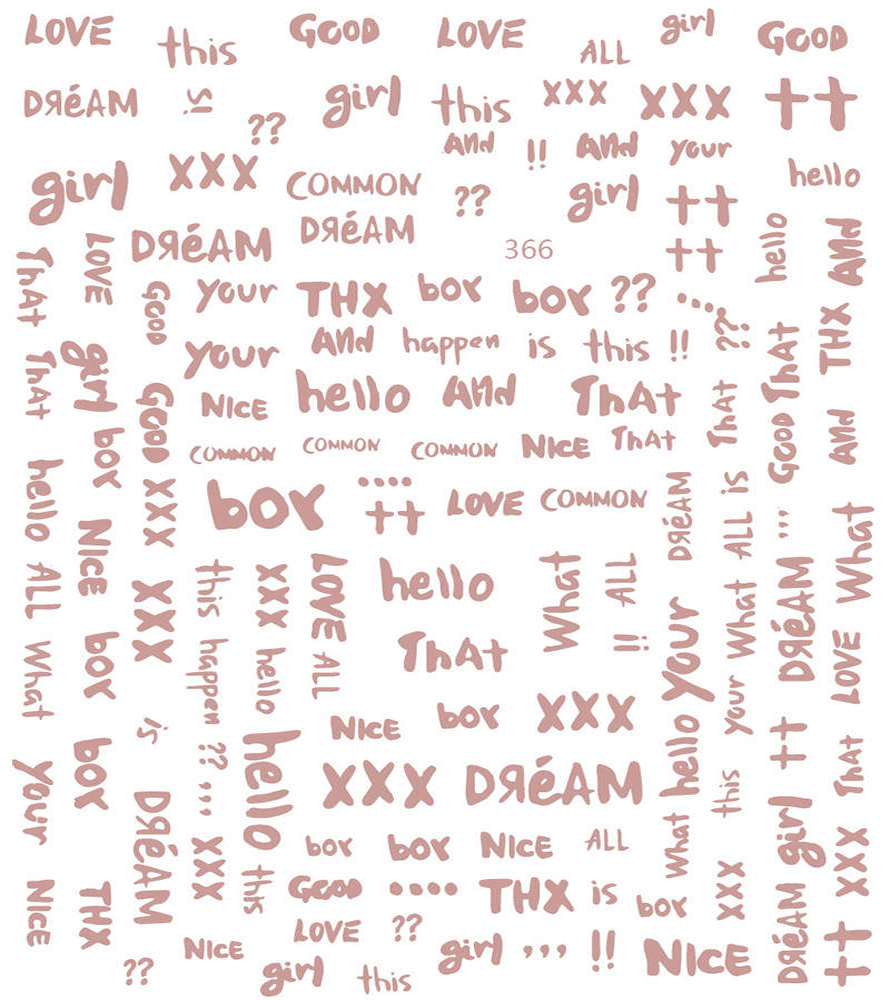 LOVE this GOOD LOVE ALL girl GOOD
DRéAM is girl this XXX XXX ††
?? And !! And your
girl XXX COMMON ?? girl †† hello
DRéAM DRéAM 366 ††
ThAt LOVE GOOD your THX boy boy ?? .... ?? hello And
your And happen is this !! THX
ThAt girl GOOD NICE hello And ThAt ThAt GOOD ThAt And
COMMON COMMON COMMON NICE ThAt
boy boy .... †† LOVE COMMON DRéAM ALL is ,,, What
hello NICE XXX
ALL XXX this XXX LOVE hello What ALL What DRéAM
What boy happen hello ALL ThAt !! your your LOVE
NICE boy XXX
your boy is ?? hello XXX DRéAM hello this †† ThAt
DRéAM ,,, boy boy NICE ALL What girl XXX
NICE THX XXX this GOOD .... THX is boy XXX DRéAM ††
NICE LOVE ?? girl ,,, !! NICE
?? girl this